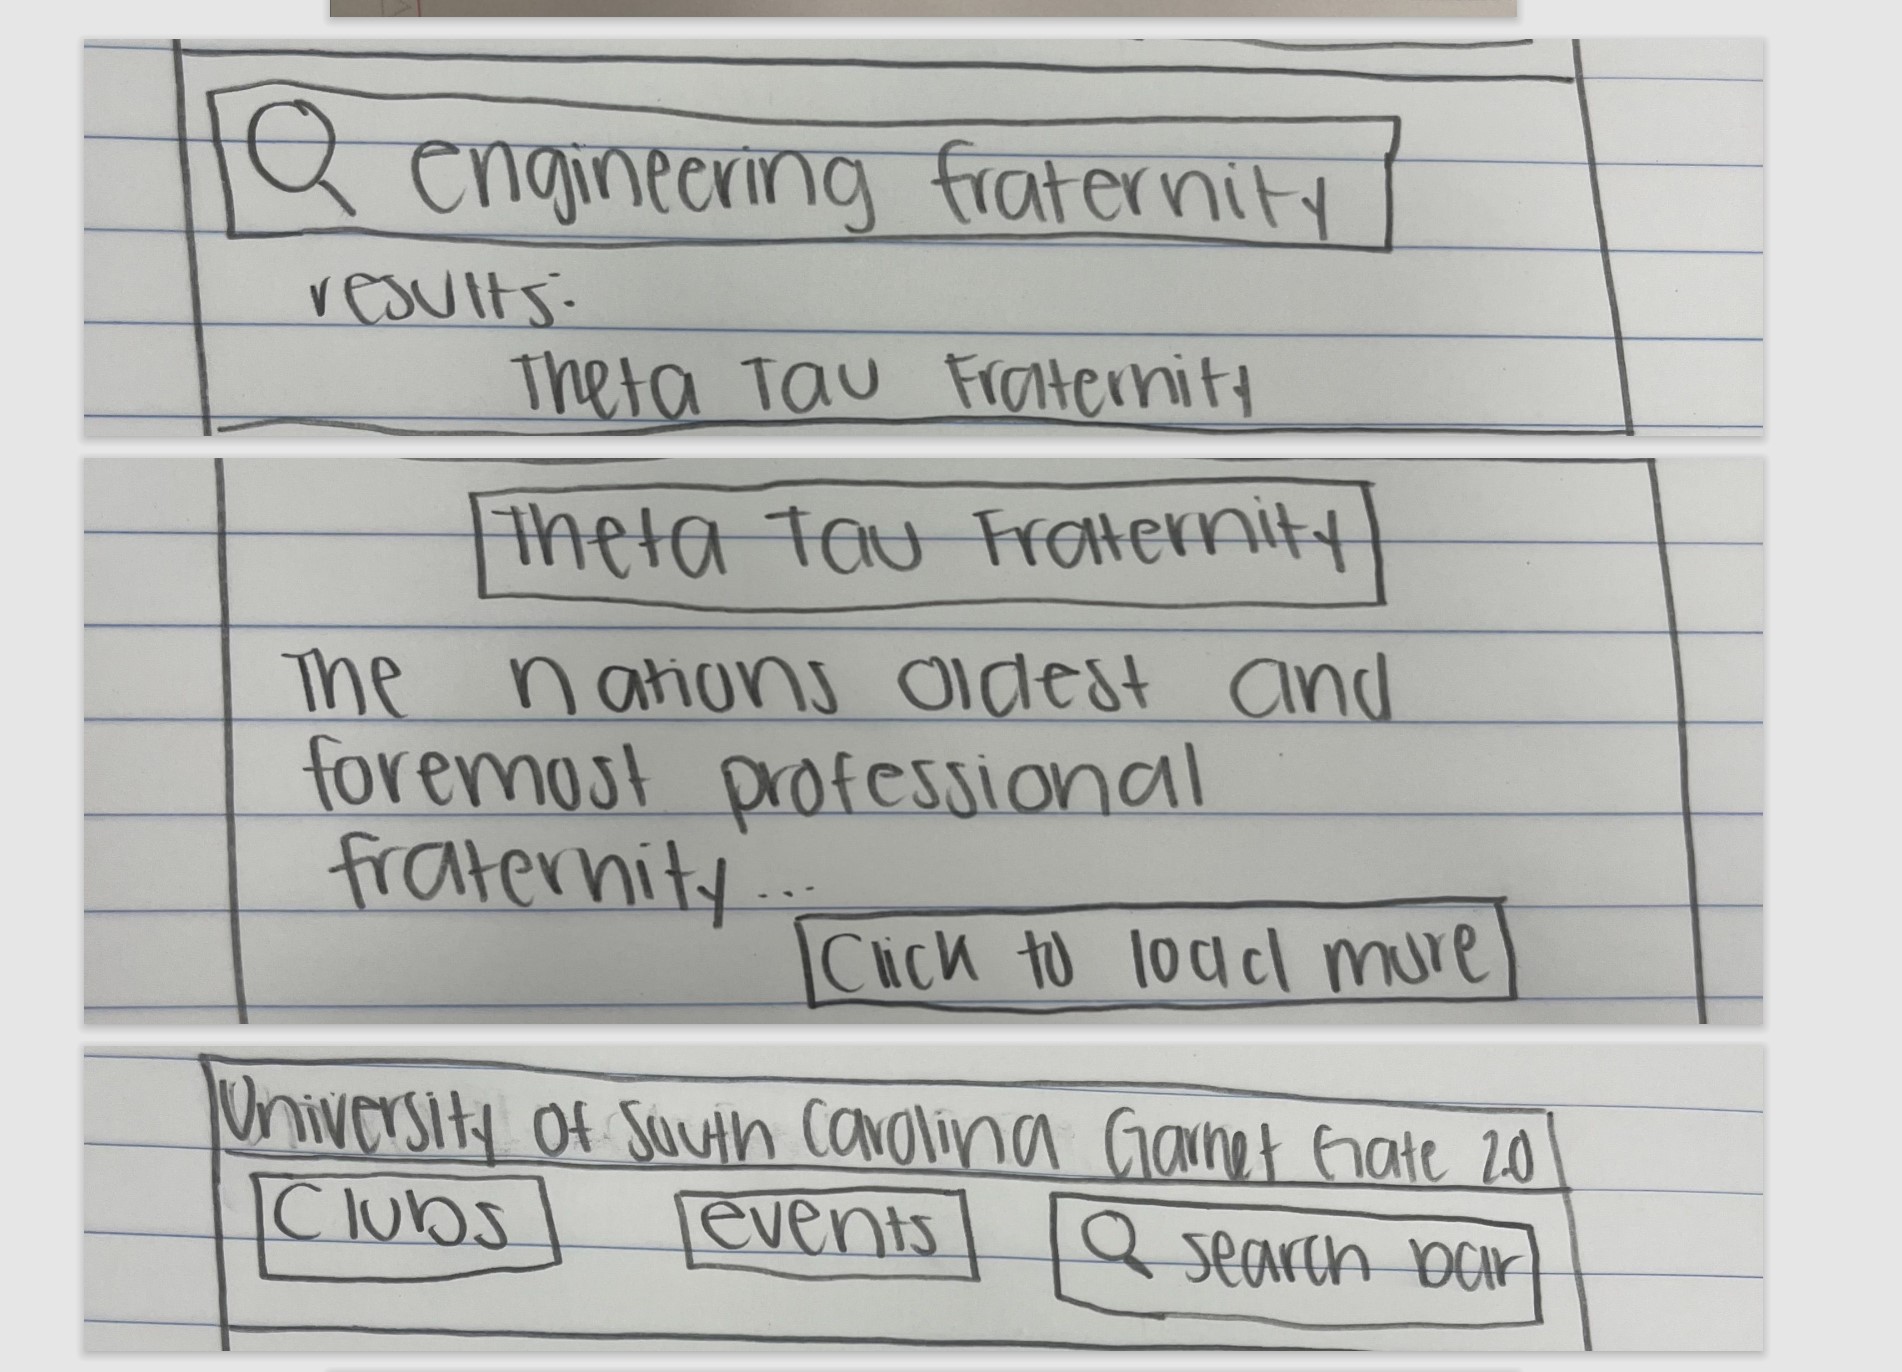 engineering fraternity
results:
Theta Tau Fraternity
Theta Tau Fraternity
The nations oldest and
foremost professional
fraternity...
Click to load more
University of South Carolina Garnet Gate 2.0
Clubs events search bar